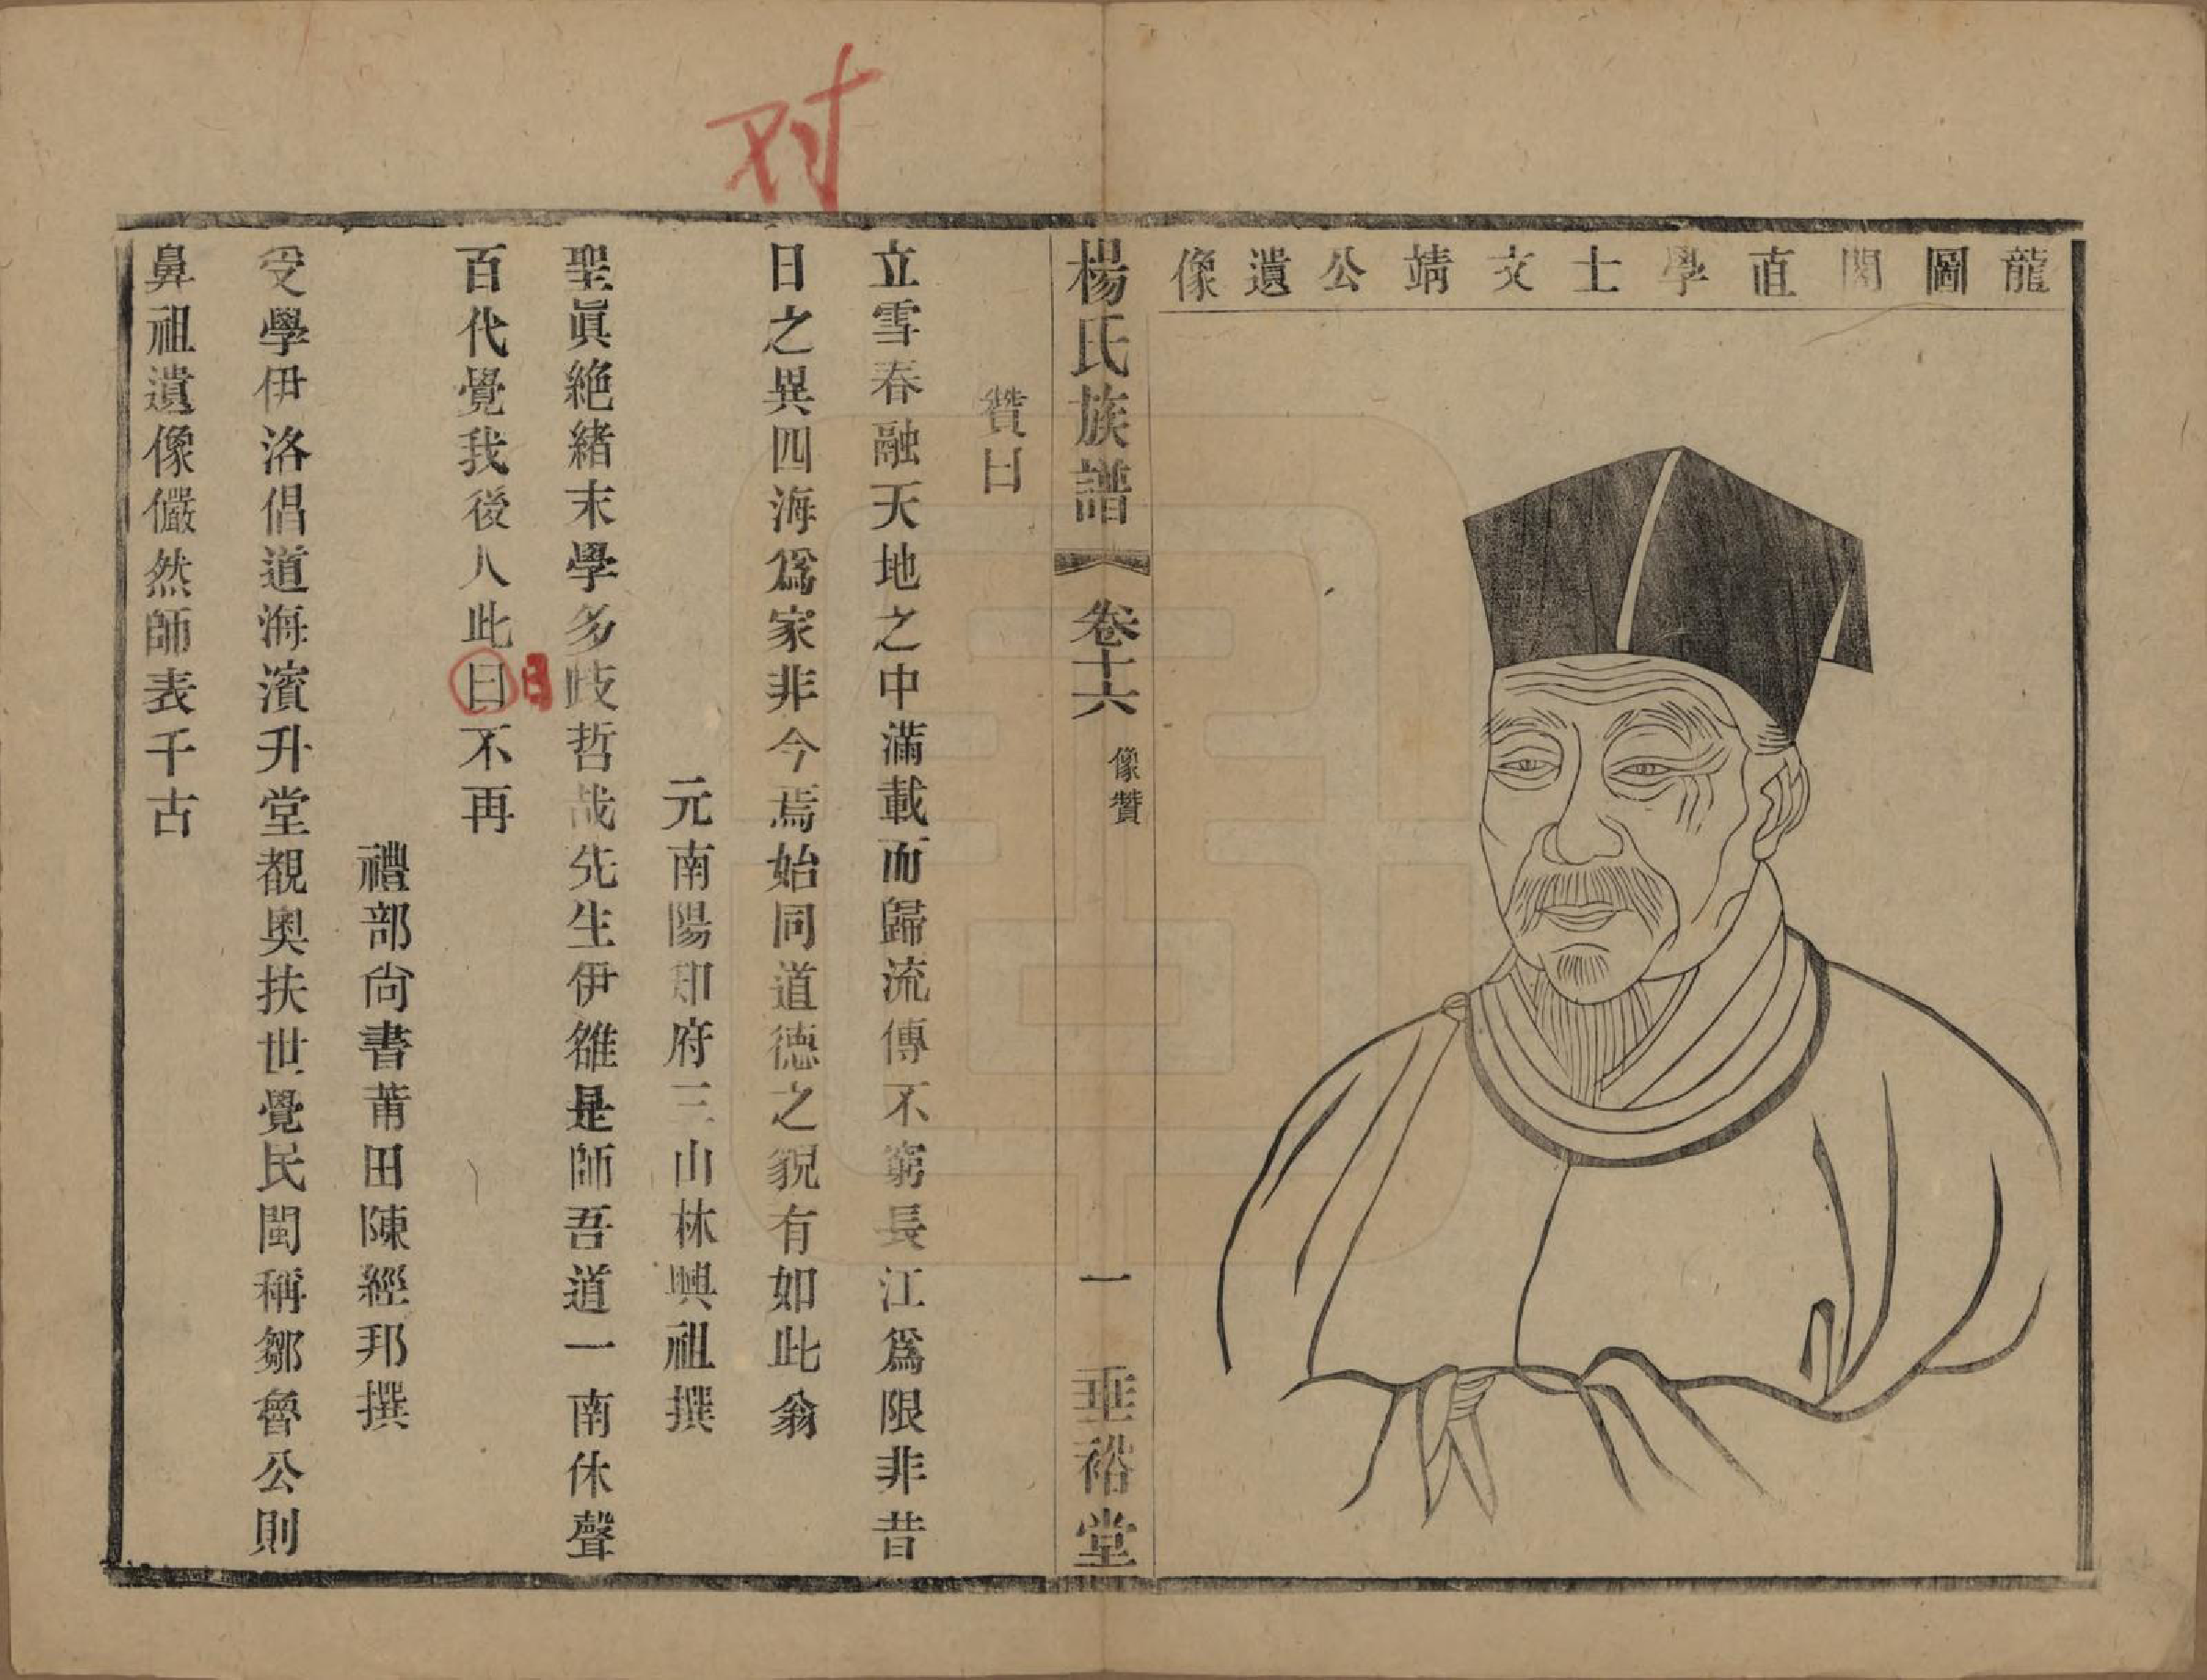 龍圖閣直學士文靖公遺像
楊氏族譜 卷十六 像贊 一 垂裕堂
贊曰
立雪春融天地之中滿載而歸流傳不窮長江爲限非昔
日之異四海爲家非今焉始同道德之貌有如此翁
元南陽知府三山林興祖撰
聖眞絕緒末學多歧哲哉先生伊雒是師吾道一南休聲
百代覺我後人此曰不再
日
禮部尚書莆田陳經邦撰
受學伊洛倡道海濱升堂覩奥扶世覺民閩稱鄒魯公則
鼻祖遺像儼然師表千古